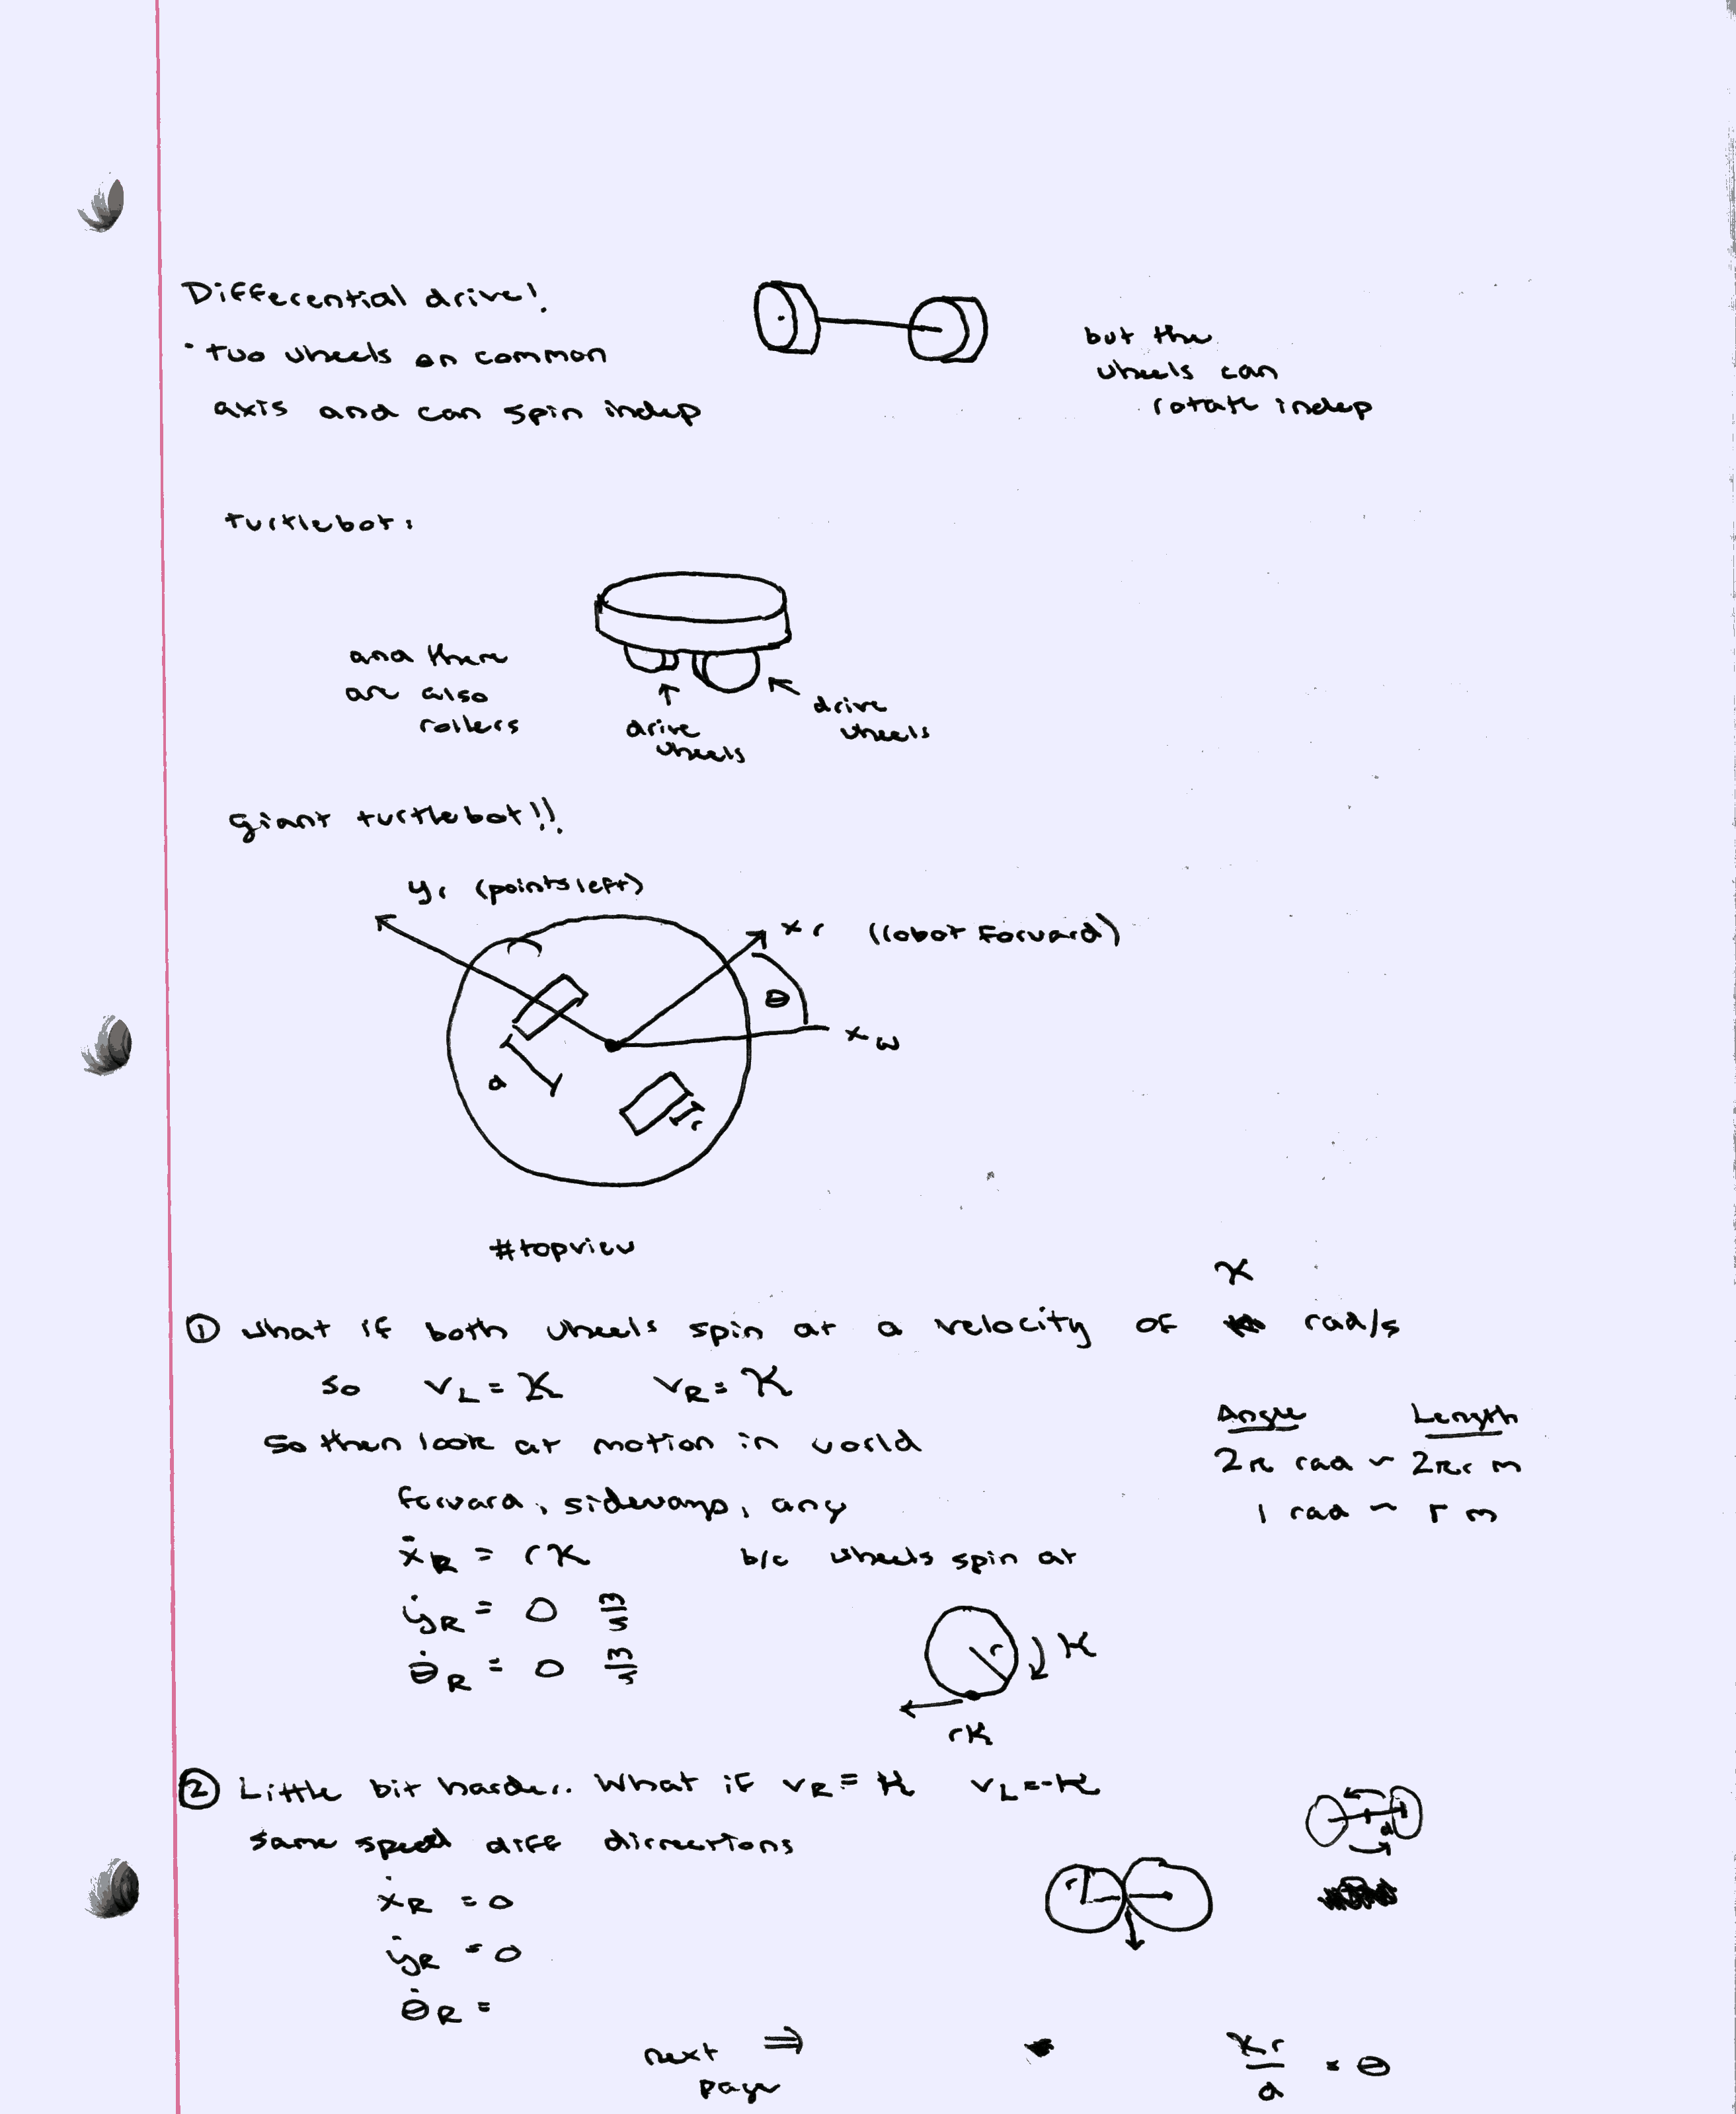 Differential drive!
• two wheels on common
axis and can spin indep
but the
wheels can
rotate indep
turtlebot:
and there
are also
rollers
drive
wheels
drive
wheels
giant turtlebot!!
yr (points left)
xr (robot forward)
θ
xw
d
r
#topview
① what if both wheels spin at a velocity of K rad/s
so vL = K vR = K
so then look at motion in world
Angle Length
2π rad ~ 2πr m
1 rad ~ r m
forward, sideways, any
ẋR = rK b/c wheels spin at
ẏR = 0 m/s
θ̇R = 0 m/s
r K
rK
② Little bit harder.. What if vR = K vL = -K
same speed diff dirrections
d
r
ẋR = 0
ẏR = 0
θ̇R =
next ⇒
page
Kr/d = θ